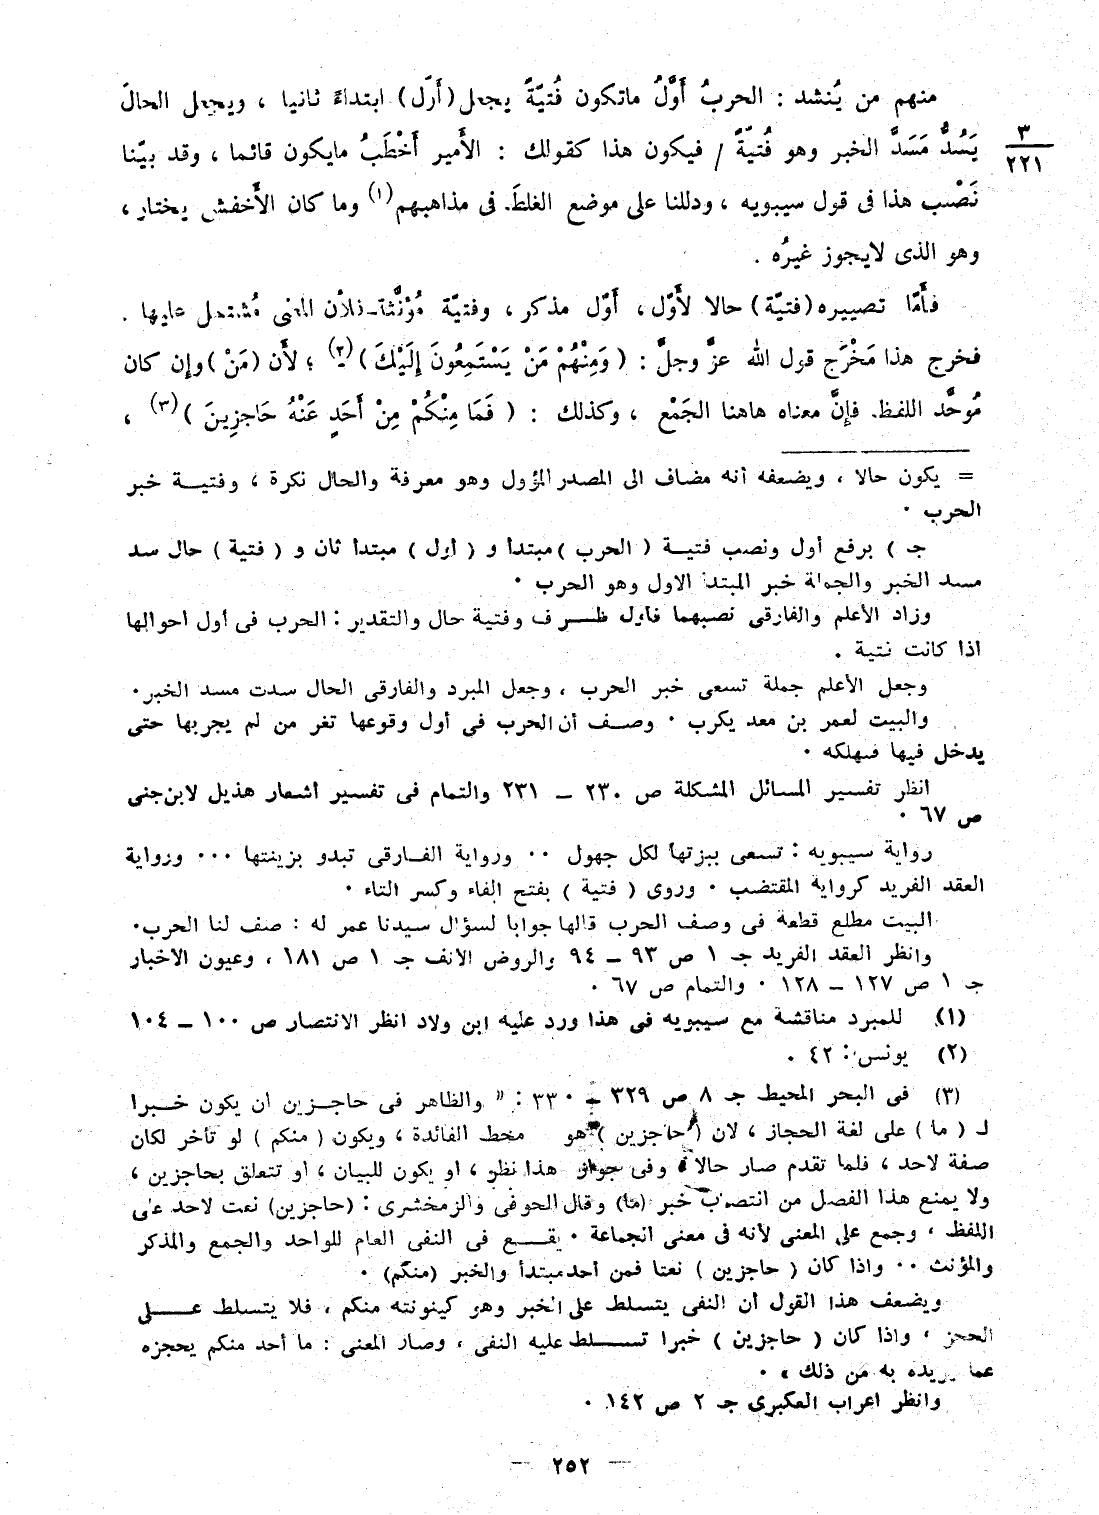 منهم من يُنشد : الحربُ أَوَّلُ ماتكون فُتيّةً يجعل (أَوّل) ابتداءً ثانيا ، ويجعل الحالَ
٣
يَسُدُّ مَسَدَّ الخبر وهو فُتيّةً / فيكون هذا كقولك : الأَمير أَخْطَبُ مايكون قائما ، وقد بيّنا
٢٢١
نَصْب هذا فى قول سيبويه ، ودللنا على موضع الغلطَ فى مذاهبهم (١) وما كان الأَخفش يختار ،
وهو الذى لايجوز غيرُه .
فأَمّا تصييره (فتيّة) حالا لأَوّل ، أَوّل مذكر ، وفتيّة مُؤنَّثة فلأن المعنى مُشتمل عليها .
فخرج هذا مَخْرَج قول الله عزَّ وجلَّ : ( وَمِنْهُمْ مَنْ يَسْتَمِعُونَ إِلَيْكَ ) (٢) ؛ لأَن (مَنْ) وإِن كان
مُوحَّد اللفظ فإِنَّ معناه هاهنا الجَمْع ، وكذلك : ( فَمَا مِنْكُمْ مِنْ أَحَدٍ عَنْهُ حَاجِزِينَ ) (٣) ،
= يكون حالا ، ويضعفه أنه مضاف الى المصدر المؤول وهو معرفة والحال نكرة ، وفتيـة خبر
الحرب .
جـ ) برفع أول ونصب فتيـة ( الحرب ) مبتدأ و ( أول ) مبتدأ ثان و ( فتية ) حال سد
مسد الخبر والجملة خبر المبتدأ الاول وهو الحرب .
وزاد الأعلم والفارقى نصبهما فأول ظـرف وفتية حال والتقدير : الحرب فى أول احوالها
اذا كانت فتية .
وجعل الأعلم جملة تسعى خبر الحرب ، وجعل المبرد والفارقى الحال سدت مسد الخبر .
والبيت لعمر بن معد يكرب . وصـف أن الحرب فى أول وقوعها تغر من لم يجربها حتى
يدخل فيها فتهلكه .
انظر تفسير المسائل المشكلة ص ٢٣٠ – ٢٣١ والتمام فى تفسير أشعار هذيل لابن جنى
ص ٦٧ .
رواية سيبويه : تسعى ببزتها لكل جهول .. ورواية الفـارقى تبدو بزينتها ... ورواية
العقد الفريد كرواية المقتضب . وروى ( فتية ) بفتح الفاء وكسر التاء .
البيت مطلع قطعة فى وصف الحرب قالها جوابا لسؤال سيدنا عمر له : صف لنا الحرب .
وانظر العقد الفريد جـ ١ ص ٩٣ – ٩٤ والروض الانف جـ ١ ص ١٨١ ، وعيون الاخبار
جـ ١ ص ١٢٧ – ١٢٨ . والتمام ص ٦٧ .
(١) للمبرد مناقشة مع سيبويه فى هذا ورد عليه ابن ولاد انظر الانتصار ص ١٠٠ – ١٠٤
(٢) يونس : ٤٢ .
(٣) فى البحر المحيط جـ ٨ ص ٣٢٩ – ٣٣٠ : " والظاهر فى حاجـزين ان يكون خـبرا
لـ ( ما ) على لغة الحجاز ، لان ( حاجزين ) هو محط الفائدة ، ويكون ( منكم ) لو تأخر لكان
صفة لاحد ، فلما تقدم صار حالا وفى جواز هذا نظر ، او يكون للبيان ، او تتعلق بحاجزين ،
ولا يمنع هذا الفصل من انتصاب خبر (ما) وقال الحوفى والزمخشرى : (حاجزين) نعت لاحد على
اللفظ ، وجمع على المعنى لأنه فى معنى الجماعة . يقـع فى النفى العام للواحد والجمع والمذكر
والمؤنث .. واذا كان ( حاجزين ) نعتا فمن أحد مبتدأ والخبر (منكم) .
ويضعف هذا القول أن النفى يتسلط على الخبر وهو كينونته منكم ، فلا يتسلط عـلى
الحجز ، واذا كان ( حاجزين ) خبرا تسـلط عليه النفى ، وصار المعنى : ما أحد منكم يحجزه
عما يريده به من ذلك » .
وانظر اعراب العكبرى جـ ٢ ص ١٤٢ .
— ٢٥٢ —